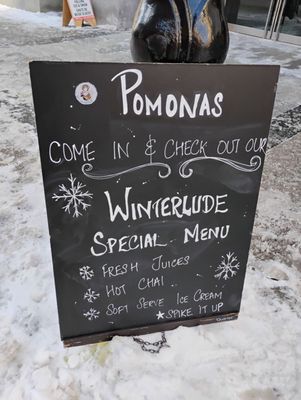 Pomonas
COME IN & CHECK OUT OUR
WINTERLUDE
SPECIAL MENU
FRESH JUICES
HOT CHAI
SOFT SERVE ICE CREAM
★ SPIKE IT UP